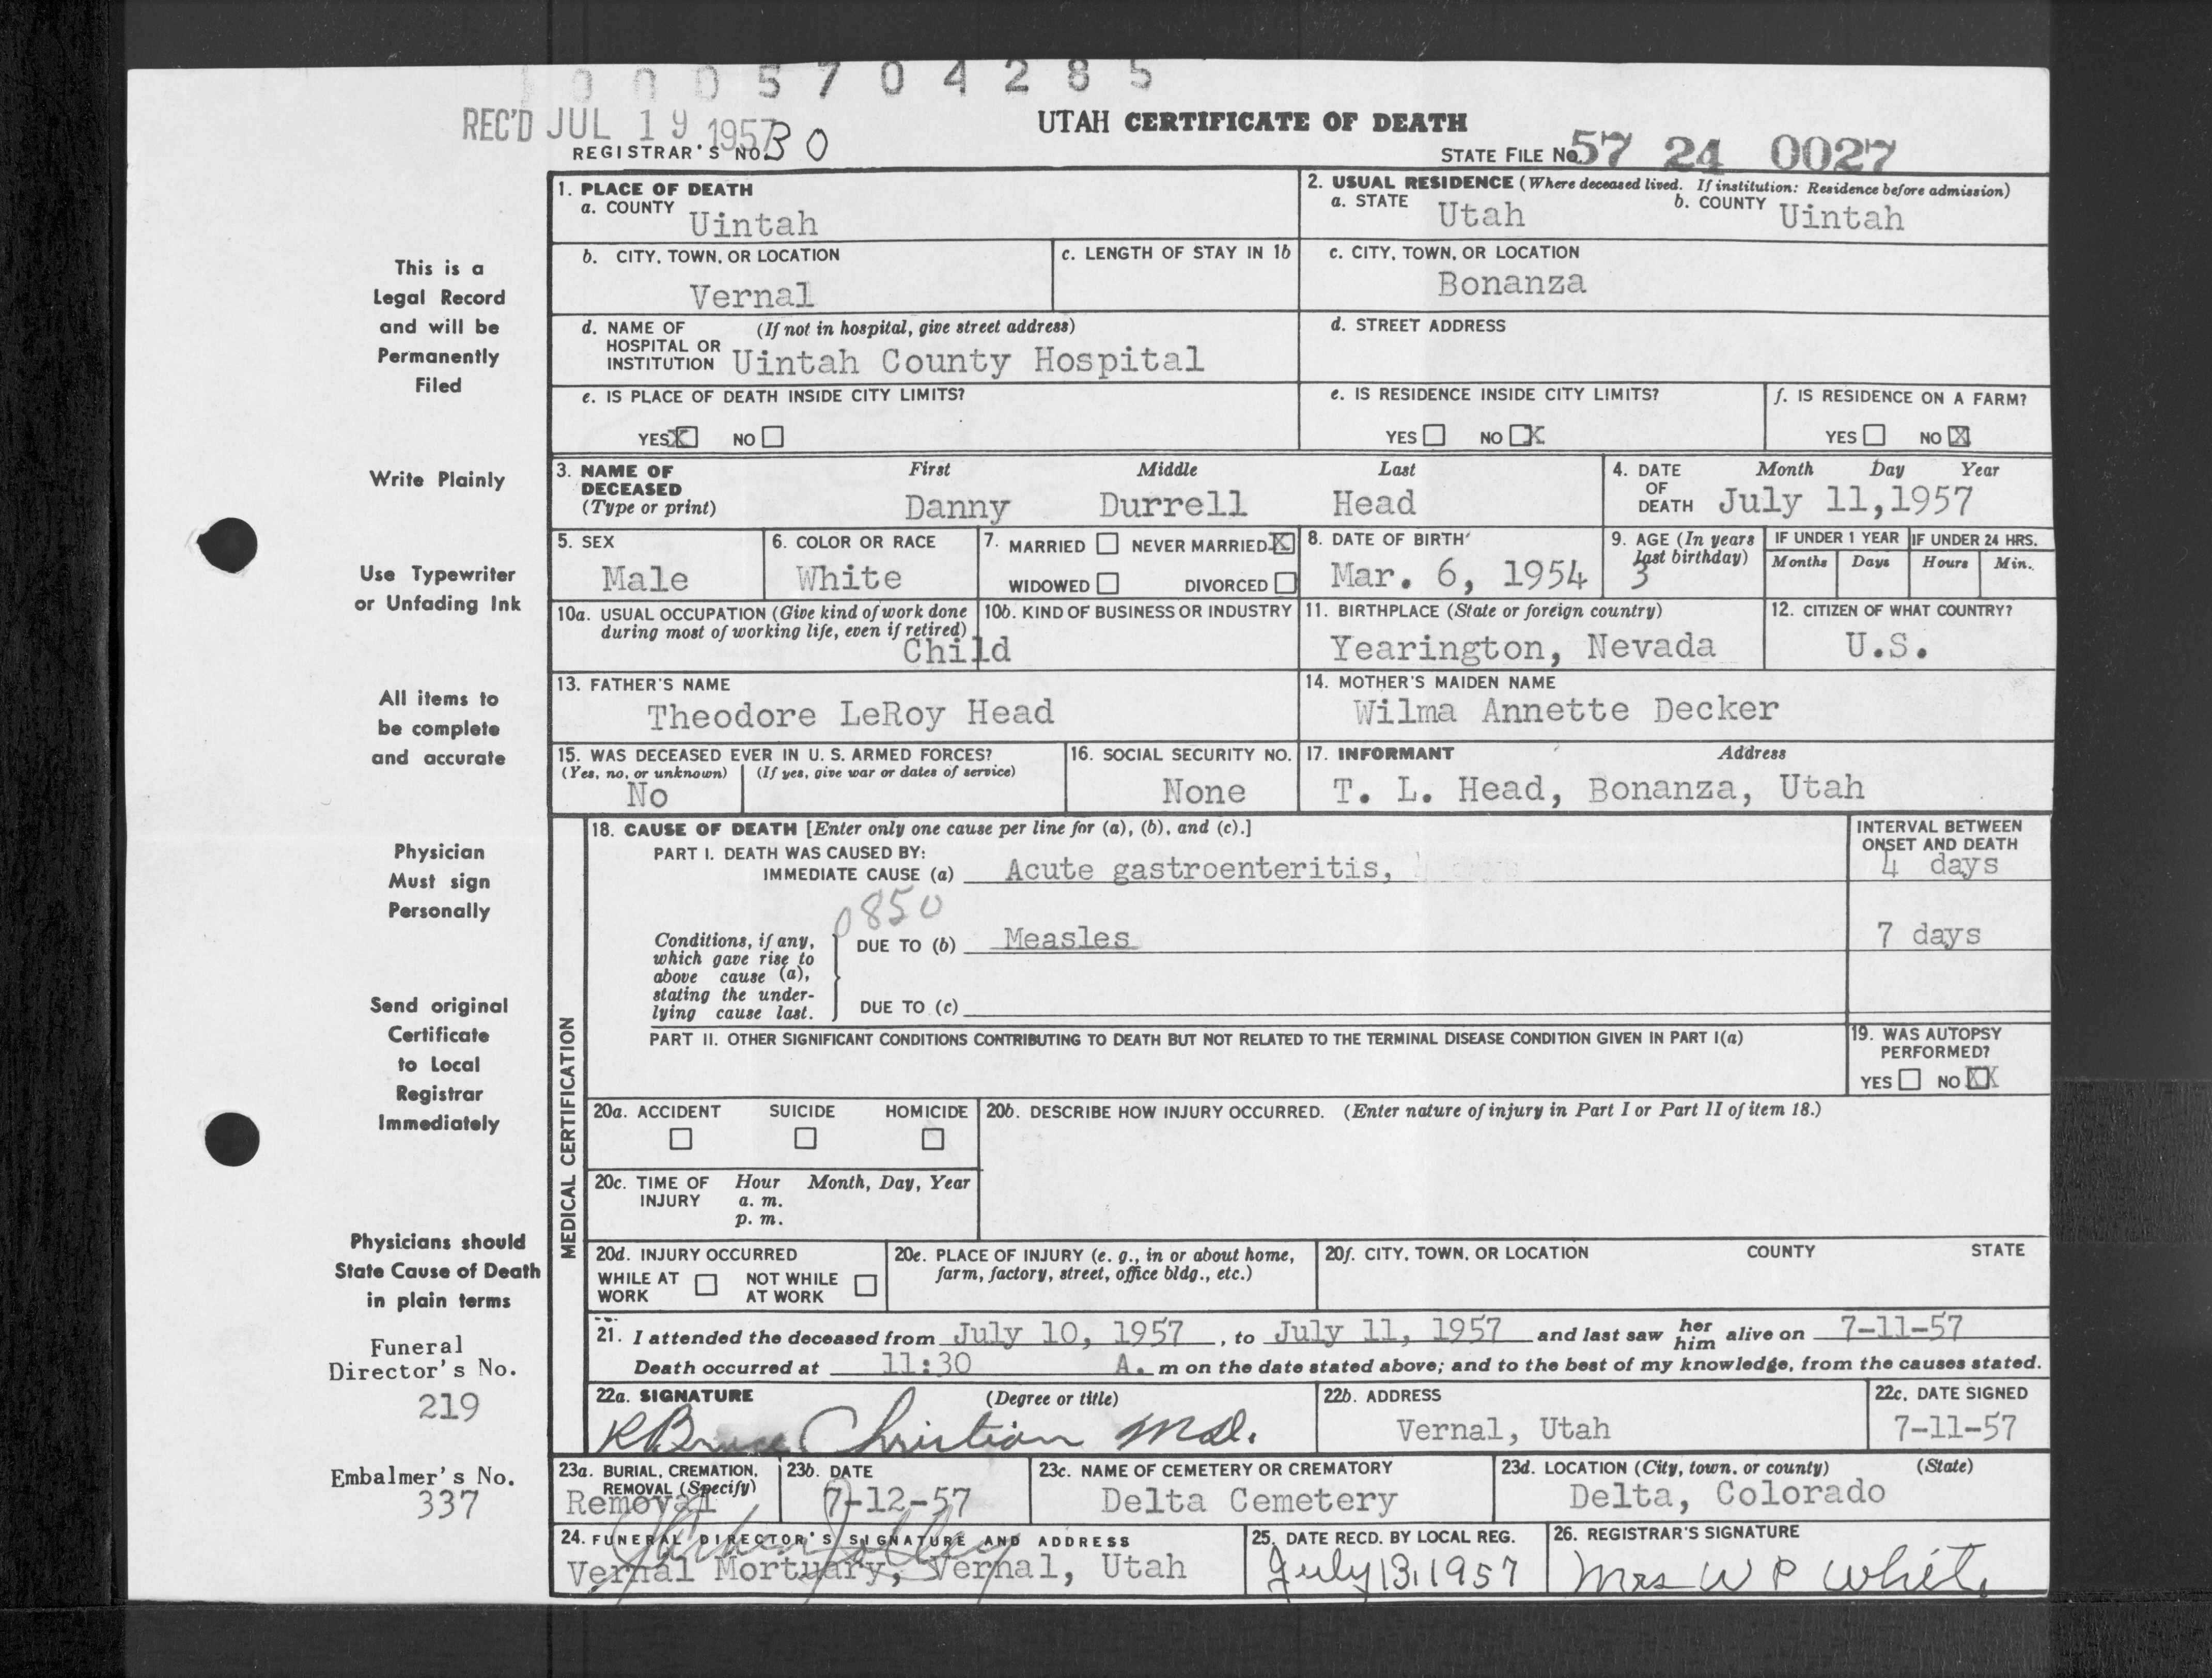 0005704285
REC'D JUL 19 1957
UTAH CERTIFICATE OF DEATH
REGISTRAR'S NO. 30
STATE FILE No. 57 24 0027
This is a
Legal Record
and will be
Permanently
Filed
Write Plainly
Use Typewriter
or Unfading Ink
All items to
be complete
and accurate
Physician
Must sign
Personally
Send original
Certificate
to Local
Registrar
Immediately
Physicians should
State Cause of Death
in plain terms
Funeral
Director's No.
219
Embalmer's No.
337
1. PLACE OF DEATH
a. COUNTY Uintah
2. USUAL RESIDENCE (Where deceased lived. If institution: Residence before admission)
a. STATE Utah b. COUNTY Uintah
b. CITY, TOWN, OR LOCATION
Vernal
c. LENGTH OF STAY IN 1b
c. CITY, TOWN, OR LOCATION
Bonanza
d. NAME OF (If not in hospital, give street address)
HOSPITAL OR
INSTITUTION Uintah County Hospital
d. STREET ADDRESS
e. IS PLACE OF DEATH INSIDE CITY LIMITS?
YES X NO
e. IS RESIDENCE INSIDE CITY LIMITS?
YES NO X
f. IS RESIDENCE ON A FARM?
YES NO X
3. NAME OF DECEASED (Type or print)
First Middle Last
Danny Durrell Head
4. DATE OF DEATH Month Day Year
July 11, 1957
5. SEX
Male
6. COLOR OR RACE
White
7. MARRIED NEVER MARRIED X
WIDOWED DIVORCED
8. DATE OF BIRTH
Mar. 6, 1954
9. AGE (In years last birthday)
3
IF UNDER 1 YEAR
Months Days
IF UNDER 24 HRS.
Hours Min.
10a. USUAL OCCUPATION (Give kind of work done
during most of working life, even if retired)
Child
10b. KIND OF BUSINESS OR INDUSTRY
11. BIRTHPLACE (State or foreign country)
Yearington, Nevada
12. CITIZEN OF WHAT COUNTRY?
U.S.
13. FATHER'S NAME
Theodore LeRoy Head
14. MOTHER'S MAIDEN NAME
Wilma Annette Decker
15. WAS DECEASED EVER IN U. S. ARMED FORCES?
(Yes, no, or unknown) (If yes, give war or dates of service)
No
16. SOCIAL SECURITY NO.
None
17. INFORMANT Address
T. L. Head, Bonanza, Utah
MEDICAL CERTIFICATION
18. CAUSE OF DEATH [Enter only one cause per line for (a), (b), and (c).]
INTERVAL BETWEEN
ONSET AND DEATH
PART I. DEATH WAS CAUSED BY:
IMMEDIATE CAUSE (a) Acute gastroenteritis, 4 days
0850
Conditions, if any,
which gave rise to
above cause (a),
stating the under-
lying cause last.
DUE TO (b) Measles 7 days
DUE TO (c)
PART II. OTHER SIGNIFICANT CONDITIONS CONTRIBUTING TO DEATH BUT NOT RELATED TO THE TERMINAL DISEASE CONDITION GIVEN IN PART I(a)
19. WAS AUTOPSY
PERFORMED?
YES NO XX
20a. ACCIDENT SUICIDE HOMICIDE
20b. DESCRIBE HOW INJURY OCCURRED. (Enter nature of injury in Part I or Part II of item 18.)
20c. TIME OF INJURY Hour Month, Day, Year
a. m.
p. m.
20d. INJURY OCCURRED
WHILE AT WORK NOT WHILE AT WORK
20e. PLACE OF INJURY (e. g., in or about home,
farm, factory, street, office bldg., etc.)
20f. CITY, TOWN, OR LOCATION COUNTY STATE
21. I attended the deceased from July 10, 1957, to July 11, 1957 and last saw her him alive on 7-11-57
Death occurred at 11:30 A. m on the date stated above; and to the best of my knowledge, from the causes stated.
22a. SIGNATURE (Degree or title)
R Bruce Christian M.D.
22b. ADDRESS
Vernal, Utah
22c. DATE SIGNED
7-11-57
23a. BURIAL, CREMATION,
REMOVAL (Specify)
Removal
23b. DATE
7-12-57
23c. NAME OF CEMETERY OR CREMATORY
Delta Cemetery
23d. LOCATION (City, town, or county) (State)
Delta, Colorado
24. FUNERAL DIRECTOR'S SIGNATURE AND ADDRESS
Vernal Mortuary, Vernal, Utah
25. DATE RECD. BY LOCAL REG.
July 13, 1957
26. REGISTRAR'S SIGNATURE
Mrs W P White